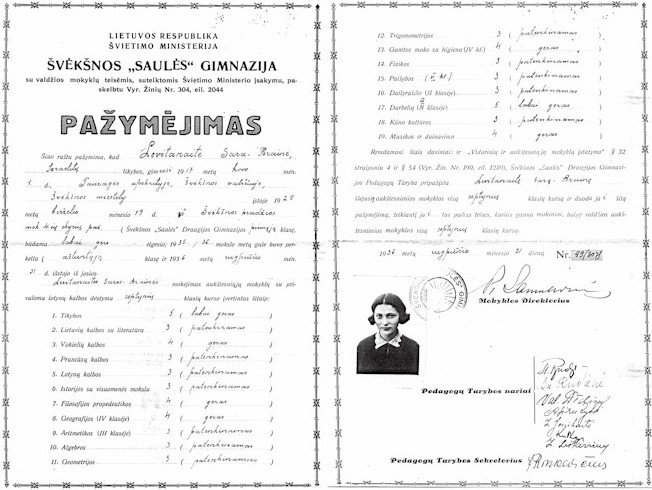 LIETUVOS RESPUBLIKA
ŠVIETIMO MINISTERIJA
ŠVĖKŠNOS „SAULĖS" GIMNAZIJA
su valdžios mokyklų teisėmis, suteiktomis Švietimo Ministerio įsakymu, pa-
skelbtu Vyr. Žinių Nr. 304, eil. 2044
PAŽYMĖJIMAS
Šiuo raštu pažymima, kad Levitanaitė Sara-Brainė,
tikybos, gimusi 1917 metų kovo mėn.
1 d., Tauragės apskrityje, Švėkšnos valsčiuje,
Švėkšnos miestely įstojo 1928
metų birželio mėnesio 19 d. iš Švėkšnos pradžios
(Švėkšnos „Saulės" Draugijos Gimnazijos klasę,
būdama labai gero elgesio, 1935/36 mokslo metų gale buvo per-
kelta į aštuntąją klasę ir 1936 metų rugpiūčio mėn.
31 d. išstojo iš jos.
Levitanaitės Saros-Brainės mokėjimas aukštesniųjų mokyklų su pri-
valomu lotynų kalbos dėstymu septynių klasių kurso įvertintas šitaip:
1. Tikybos 5 ( labai geras )
2. Lietuvių kalbos su literatūra 3 ( patenkinamas )
3. Vokiečių kalbos 4 ( geras )
4. Prancūzų kalbos 3 ( patenkinamas )
5. Lotynų kalbos 3 ( patenkinamas )
6. Istorijos su visuomenės mokslu 3 ( patenkinamas )
7. Filosofijos propedeutikos 4 ( geras )
8. Geografijos (IV klasėje) 4 ( geras )
9. Aritmetikos (III klasėje) 3 ( patenkinamas )
10. Algebros 3 ( patenkinamas )
11. Geometrijos 3 ( patenkinamas )
12. Trigonometrijos 3 ( patenkinamas )
13. Gamtos moks su higiena (IV kl.) 4 ( geras )
14. Fizikos 3 ( patenkinamas )
15. Paišybos 3 ( patenkinamas )
16. Dailyraščio (II klasėje) 3 ( patenkinamas )
17. Darbelių 5 ( labai geras )
18. Kūno kultūros 3 ( patenkinamas )
19. Muzikos ir dainavimo 4 ( geras )
Remdamosi šiais daviniais ir „Vidurinių ir aukštesniųjų mokyklų įstatymo" § 32
straipsniu 4 ir § 54 (Vyr. Žin. Nr. 100, eil. 1280), Švėkšnos „Saulės" Draugijos Gimnazi-
jos Pedagogų Taryba pripažįsta Levitanaitę Sarą-Brainę
išėjusią aukštesniosios mokyklos septynių klasių kursą ir duoda jai šitą
pažymėjimą, teikiantį jai tas pačias teises, kurias gauna mokiniai, baigę valdžios aukš-
tesniosios mokyklos visų septynių klasių kursą.
1936 metų rugpiūčio mėnesio 31 dieną Nr.
Mokyklos Direktorius
Pedagogų Tarybos nariai
Pedagogų Tarybos Sekretorius